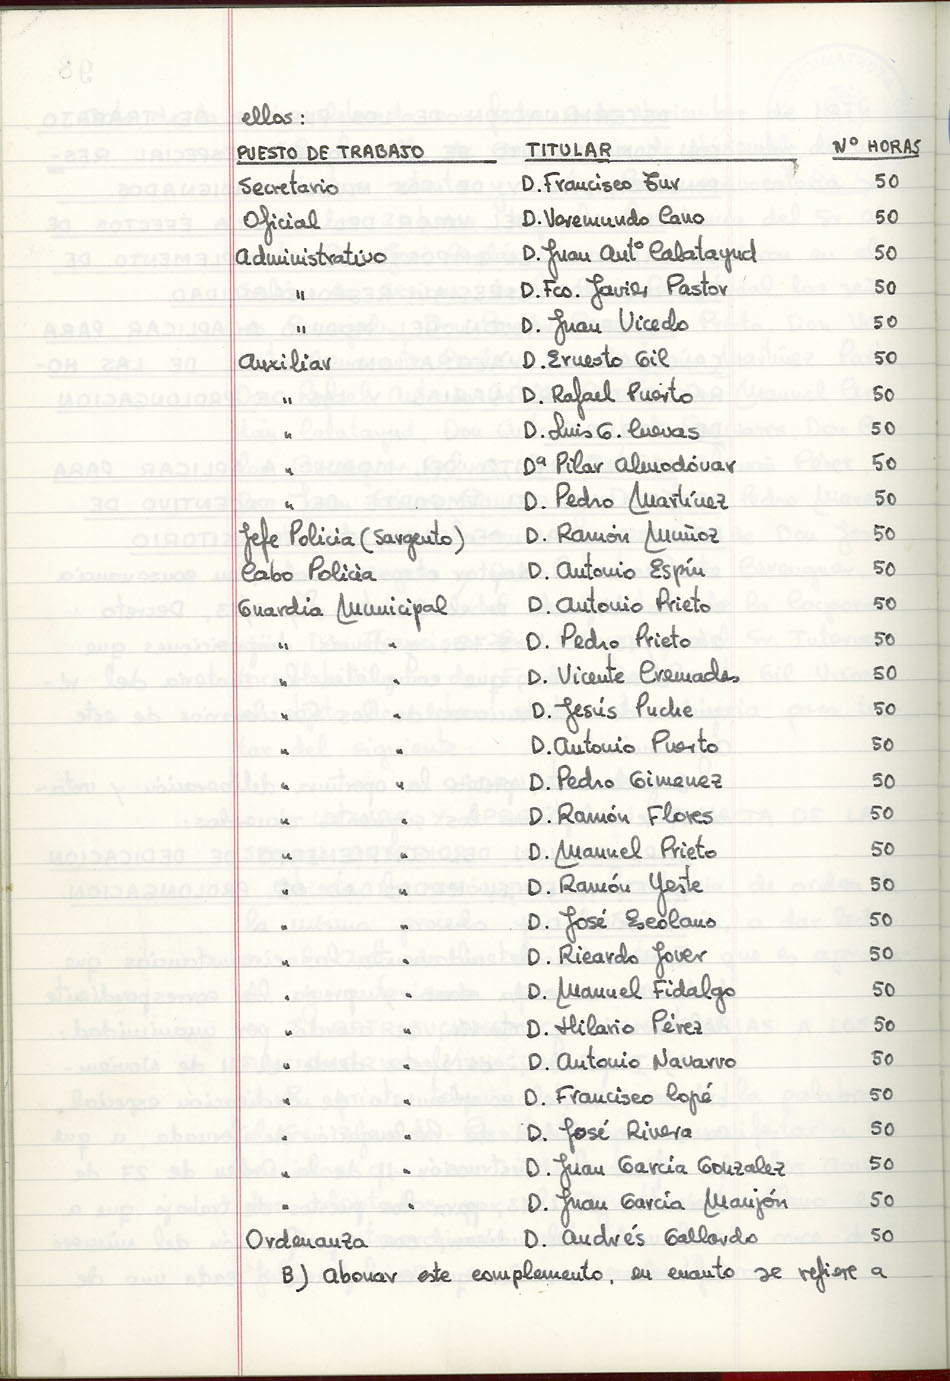 ellos:
PUESTO DE TRABAJO TITULAR Nº HORAS
Secretario D. Francisco Tur 50
Oficial D. Veremundo Cano 50
Administrativo D. Juan Antº Calatayud 50
" D. Fco. Javier Pastor 50
" D. Juan Vicedo 50
Auxiliar D. Ernesto Gil 50
" D. Rafael Puerto 50
" D. Luis G. Cuevas 50
" Dª Pilar Almodóvar 50
" D. Pedro Martínez 50
Jefe Policia (Sargento) D. Ramón Muñoz 50
Cabo Policia D. Antonio Espín 50
Guardia Municipal D. Antonio Prieto 50
" " D. Pedro Prieto 50
" " D. Vicente Cremades 50
" " D. Jesús Puche 50
" " D. Antonio Puerto 50
" " D. Pedro Gimenez 50
" " D. Ramón Flores 50
" " D. Manuel Prieto 50
" " D. Ramón Yeste 50
" " D. José Escolano 50
" " D. Ricardo Jover 50
" " D. Manuel Fidalgo 50
" " D. Hilario Pérez 50
" " D. Antonio Navarro 50
" " D. Francisco Copé 50
" " D. José Rivera 50
" " D. Juan García Gonzalez 50
" " D. Juan García Manjón 50
Ordenanza D. Andrés Gallardo 50
B) Abonar este complemento, en cuanto se refiere a